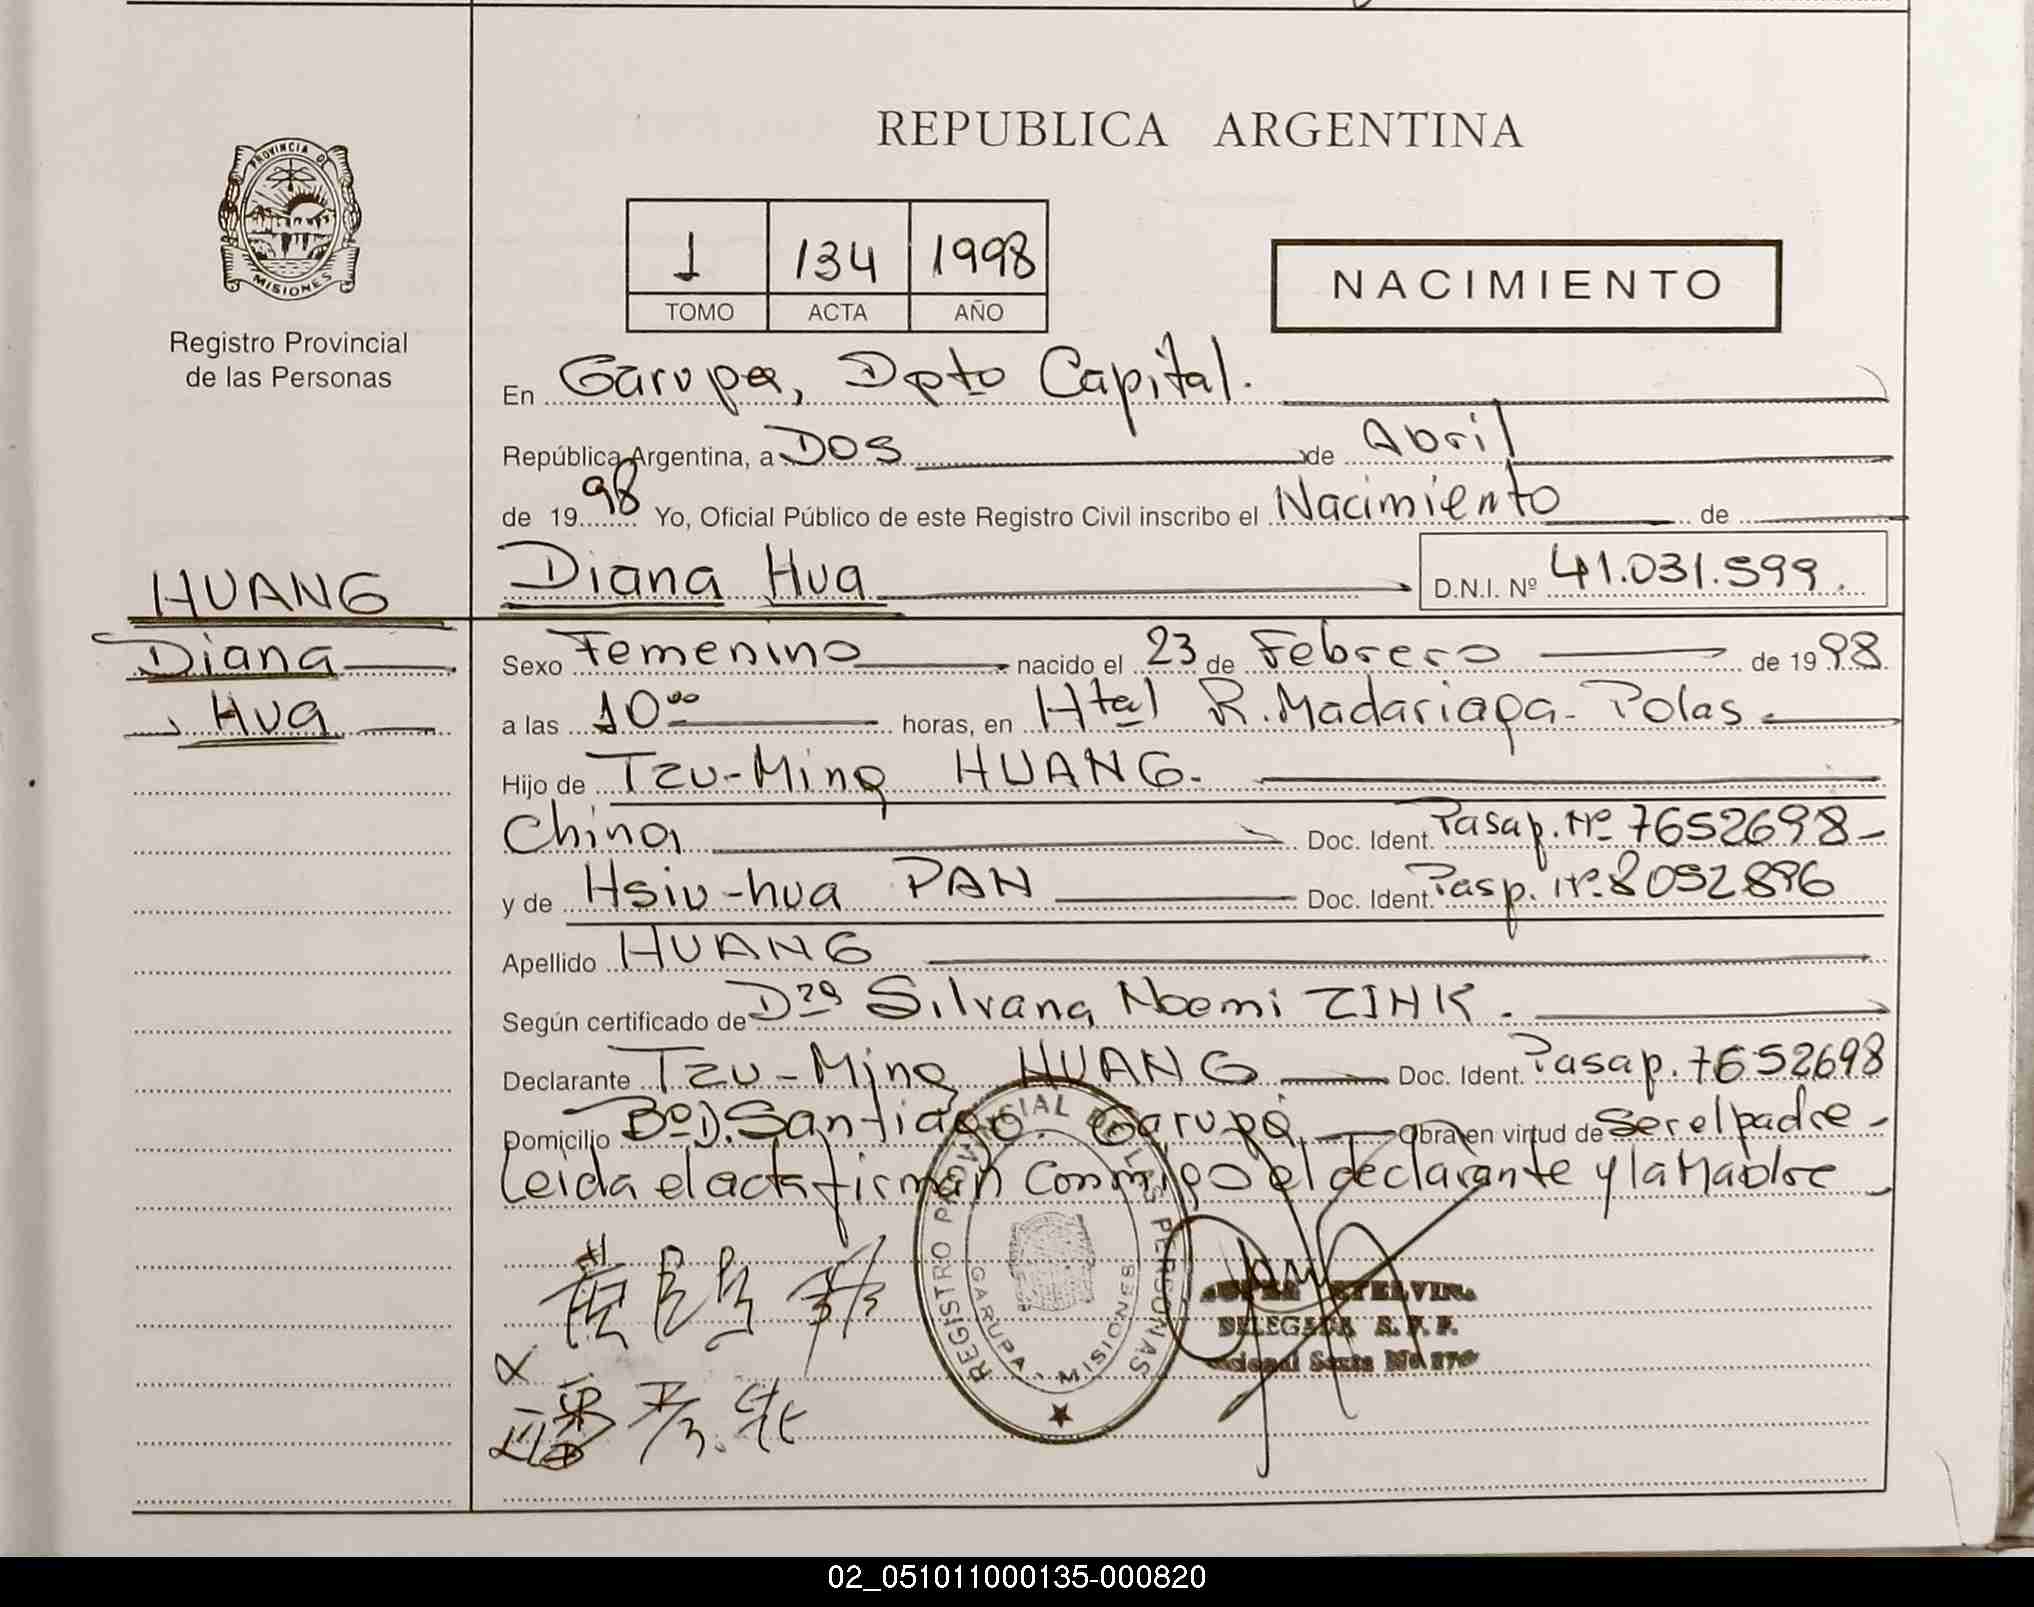 REPUBLICA ARGENTINA
PROVINCIA DE
MISIONES
Registro Provincial
de las Personas
1 134 1998
TOMO ACTA AÑO
NACIMIENTO
En Garupa, Dpto Capital.
República Argentina, a Dos de Abril
de 1998 Yo, Oficial Público de este Registro Civil inscribo el Nacimiento de
HUANG
Diana
Hua
Diana Hua D.N.I. Nº 41.031.599.
Sexo Femenino nacido el 23 de Febrero de 1998
a las 10ºº horas, en Htal R. Madariaga - Polas
Hijo de Tzu-Ming HUANG.
China Doc. Ident. Pasap. Nº 7652698
y de Hsiu-hua PAN Doc. Ident. Pasp. nº 8052896
Apellido HUANG
Según certificado de Dra Silvana Noemi ZINK.
Declarante Tzu-Ming HUANG Doc. Ident. Pasap. 7652698
Domicilio Bº D. Santiago. Garupá Obra en virtud de ser el padre
Leida el acta firman conmigo el declarante y la Madre
REGISTRO PROVINCIAL DE LAS PERSONAS
GARUPA - MISIONES
黄
潘
DELEGADA R. P. P.
02_051011000135-000820